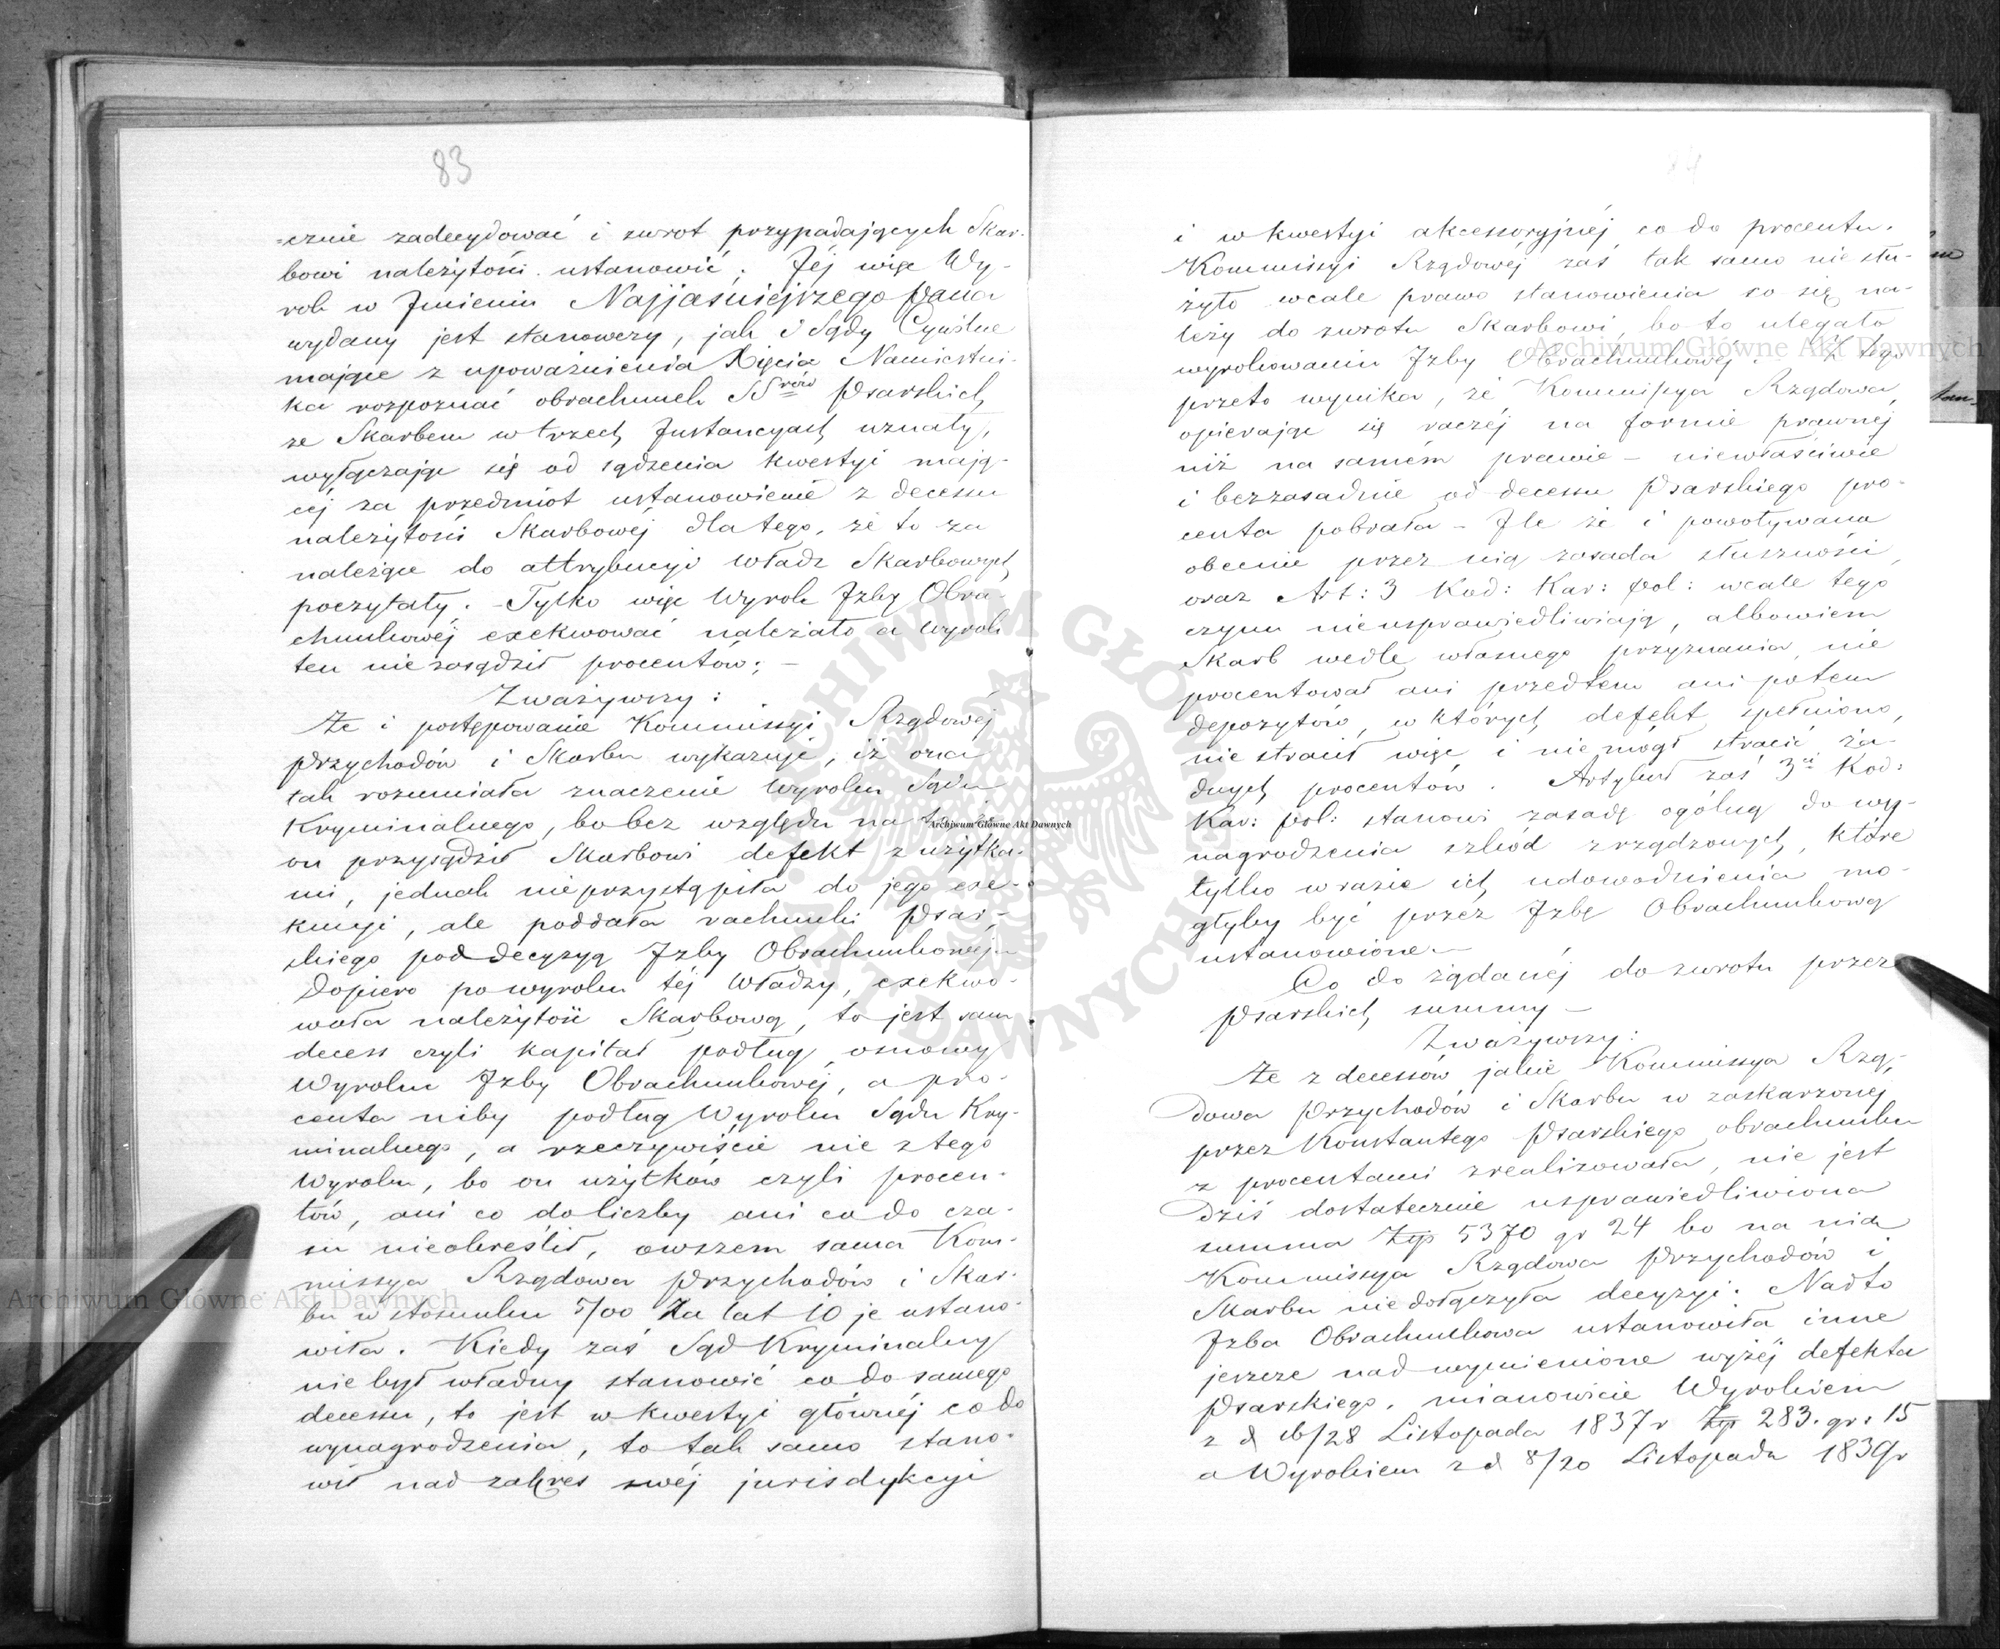 83
=cznie zadecydować i zwrot przypadających Skar-
bowi należytości ustanowić. Jéj więc Wy-
rok w Imieniu Najjaśniejszego Pana
wydany jest stanowczy, jak i Sądy Cywilne
mające z upoważnienia Xięcia Namiestni-
ka rozpoznać obrachunek SSrów Psarskich
ze Skarbem w trzech Instancyach uznały,
wyłączając się od sądzenia kwestyi mają-
céj za przedmiot ustanowienie z decessu
należytości Skarbowéj dla tego, że to za
należące do attrybucyi Władz Skarbowych
poczytały. - Tylko więc Wyrok Izby Obra-
chunkowéj exekwować należało a Wyrok
ten nie zasądził procentów; -
Zważywszy:
Że i postępowanie Kommissyi Rządowéj
Przychodów i Skarbu wykazuje, iż ona
tak rozumiała znaczenie Wyroku Sądu
Kryminalnego, bo bez względu na to że
on przysądził Skarbowi defekt z użytka-
mi, jednak nieprzystąpiła do jego exe-
kucyi, ale poddała rachunki Psar-
skiego pod decyzyą Izby Obrachunkowéj.
Dopiero po wyroku téj Władzy, exekwo-
wała należytość Skarbową, to jest sam
decess czyli kapitał podług osnowy
Wyroku Izby Obrachunkowéj, a pro-
centa niby podług Wyroku Sądu Kry-
minalnego, a rzeczywiście nie z tego
Wyroku, bo on użytków czyli procen-
tów, ani co do liczby ani co do cza-
su nieokreślił, owszem sama Kom-
missya Rządowa Przychodów i Skar-
bu w stosunku 5/00 Za lat 10 je ustano-
wiła. Kiedy zaś Sąd Kryminalny
nie był władny stanowić co do samego
decessu, to jest w kwestyi głównéj co do
wynagrodzenia, to tak samo stano-
wił nad zakres swéj jurisdykcyi
84
i w kwestyi akcessoryjnéj co do procentu.
Kommissyi Rządowéj zaś tak samo nie słu-
żyło wcale prawo stanowienia co się na-
leży do zwrotu Skarbowi, bo to ulegało
wyrokowaniu Izby Obrachunkowéj. Z tego
przeto wynika, że Kommissya Rządowa
opierając się raczéj na formie prawnéj
niż na samém prawie - niewłaściwie
i bezzasadnie od decessu Psarskiego pro-
centa pobrała - Ile że i powoływana
obecnie przez nią zasada słuszności
oraz Art: 3 Kod: Kar: pol: wcale tego
czynu nieusprawiedliwiają, albowiem
Skarb wedle własnego przyznania, nie
procentował ani przedtem ani potem
depozytów, w których defekt spełniono,
nie stracił więc i nie mógł stracić ża-
dnych procentów. Artykuł zaś 3ci Kod:
Kar: pol: stanowi zasadę ogólną do wy-
nagrodzenia szkód zrządzonych, które
tylko w razie ich udowodnienia mo-
głyby być przez Izbę Obrachunkową
ustanowione. -
Co do żądanéj do zwrotu przez
Psarskich summy -
Zważywszy:
Że z decessów jakie Kommissya Rzą-
dowa Przychodów i Skarbu w zaskarżonéj
przez Konstantego Psarskiego obrachunku
z procentami zrealizowała, nie jest
dziś dostatecznie usprawiedliwiona
summa Złp 5370 gr 24 bo na nią
Kommissya Rządowa Przychodów i
Skarbu niedołączyła decyzyi. Nadto
Izba Obrachunkowa ustanowiła inne
jeszcze nad wymienione wyżéj defekta
Psarskiego, mianowicie Wyrokiem
z d 16/28 Listopada 1837 r Złp 283. gr: 15
a Wyrokiem z d 8/20 Listopada 1839 r
Archiwum Główne Akt Dawnych
Archiwum Główne Akt Dawnych
Archiwum Główne Akt Dawnych
ARCHIWUM GŁÓWNE AKT DAWNYCH